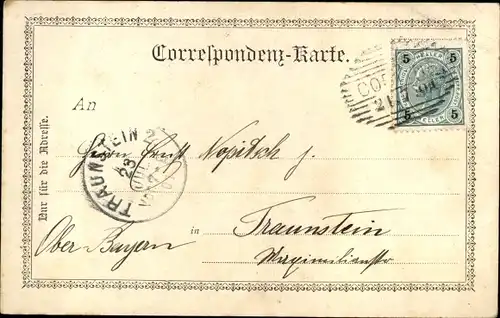 Correspondenz-Karte.
5 5
5 5
An
Nur für die Adresse.
TRAUNSTEIN 2
23
Herrn Ernst Nopitsch
in Traunstein
Ober-Bayern
Maximilianstr